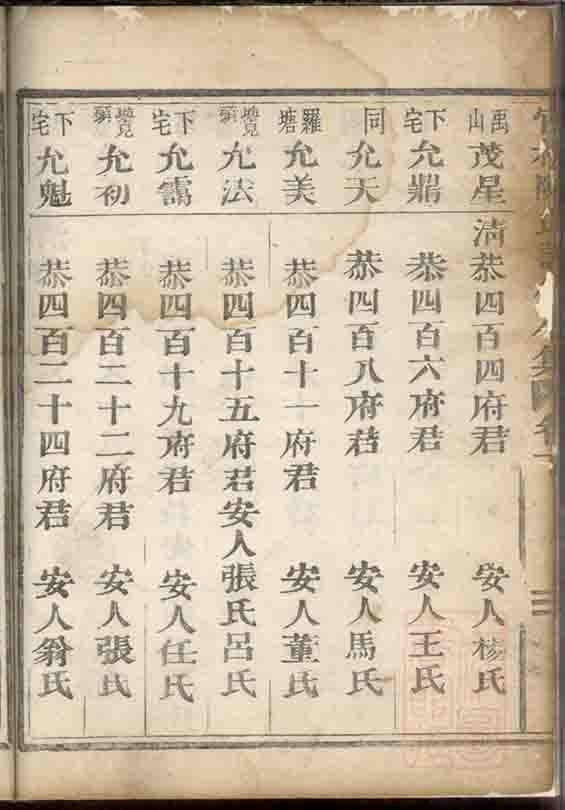 禹山茂星 清恭四百四府君 安人楊氏
下宅允鼎 恭四百六府君 安人王氏
同允天 恭四百八府君 安人馬氏
羅塘允美 恭四百十一府君 安人董氏
允法 恭四百十五府君安人張氏呂氏
下宅允霱 恭四百十九府君 安人任氏
允初 恭四百二十二府君 安人張氏
下宅允魁 恭四百二十四府君 安人翁氏